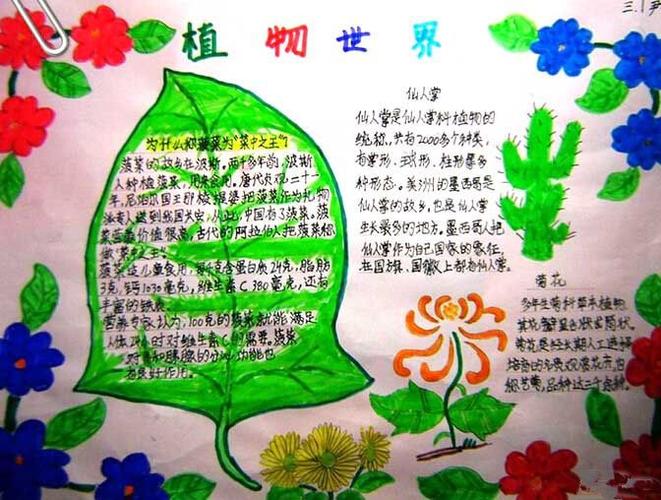 三.1
植物世界
为什么称菠菜为"菜中之王"?
菠菜的故乡在波斯。两千多年前,波斯
人种植菠菜,用来食用。唐代贞观二十一
年,尼泊尔国王那棱提婆把菠菜作为礼物
派专人送到我国长安,从此,中国有了菠菜。菠
菜营养价值很高,古代的阿拉伯人把菠菜称
做"菜中之王"。
菠菜适儿童食用,每 克含蛋白质24克,脂肪
3克,钙1030毫克,维生素C 380毫克,还有
丰富的铁
营养专家认为,100克的菠菜就能满足
人体24小时对维生素C的需要。菠菜
对胃和胰腺的分泌功能也
有良好作用。
仙人掌
仙人掌是仙人掌科植物的
统称,共有2000多个种类,
有掌形、球形、柱形等多
种形态。美洲的墨西哥是
仙人掌的故乡,也是仙人掌
生长最多的地方。墨西哥人把
仙人掌作为自己国家的象征,
在国旗、国徽上都有仙人掌。
菊花
多年生菊科草本植物,
其花瓣呈舌状或筒状。
菊花是经长期人工选择
培育的名贵观赏花卉,也
称艺菊,品种达三千余种。